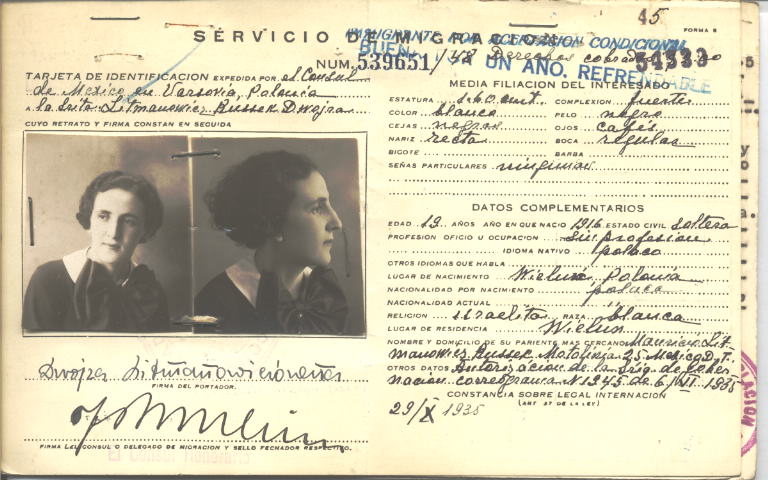 45
FORMA 5
SERVICIO DE MIGRACION
INMIGRANTE POR ACEPTACION CONDICIONAL
BUENA
UN AÑO. REFRENDABLE
NUM. 539651
54333
TARJETA DE IDENTIFICACION EXPEDIDA POR el Consul
de Mexico en Varsovia, Polonia
a la Srita. Litmanowicz Russek Dwojra
CUYO RETRATO Y FIRMA CONSTAN EN SEGUIDA
FIRMA DEL PORTADOR.
FIRMA DEL CONSUL O DELEGADO DE MIGRACION Y SELLO FECHADOR RESPECTIVO.
El Consul Honorario
MEDIA FILIACION DEL INTERESADO
ESTATURA 1.60 cmt. COMPLEXION fuerte
COLOR blanca PELO negro
CEJAS negras OJOS cafés
NARIZ recta BOCA regular
BIGOTE BARBA
SEÑAS PARTICULARES ningunas
DATOS COMPLEMENTARIOS
EDAD 19 AÑOS AÑO EN QUE NACIO 1916 ESTADO CIVIL soltera
PROFESION OFICIO U OCUPACION Sin profesion
IDIOMA NATIVO polaco
OTROS IDIOMAS QUE HABLA
LUGAR DE NACIMIENTO Wieluń Polonia
NACIONALIDAD POR NACIMIENTO polaca
NACIONALIDAD ACTUAL "
RELIGION israelita RAZA blanca
LUGAR DE RESIDENCIA Wieluń
NOMBRE Y DOMICILIO DE SU PARIENTE MAS CERCANO Mauricio Lit
manowicz Russek Motolinía 25 Mexico D.F.
OTROS DATOS Autorizacion de la Sria. de Gober
nacion correograma N 1345 de 6/VII 1935
CONSTANCIA SOBRE LEGAL INTERNACION
(ART 37 DE LA LEY)
29/X 1935